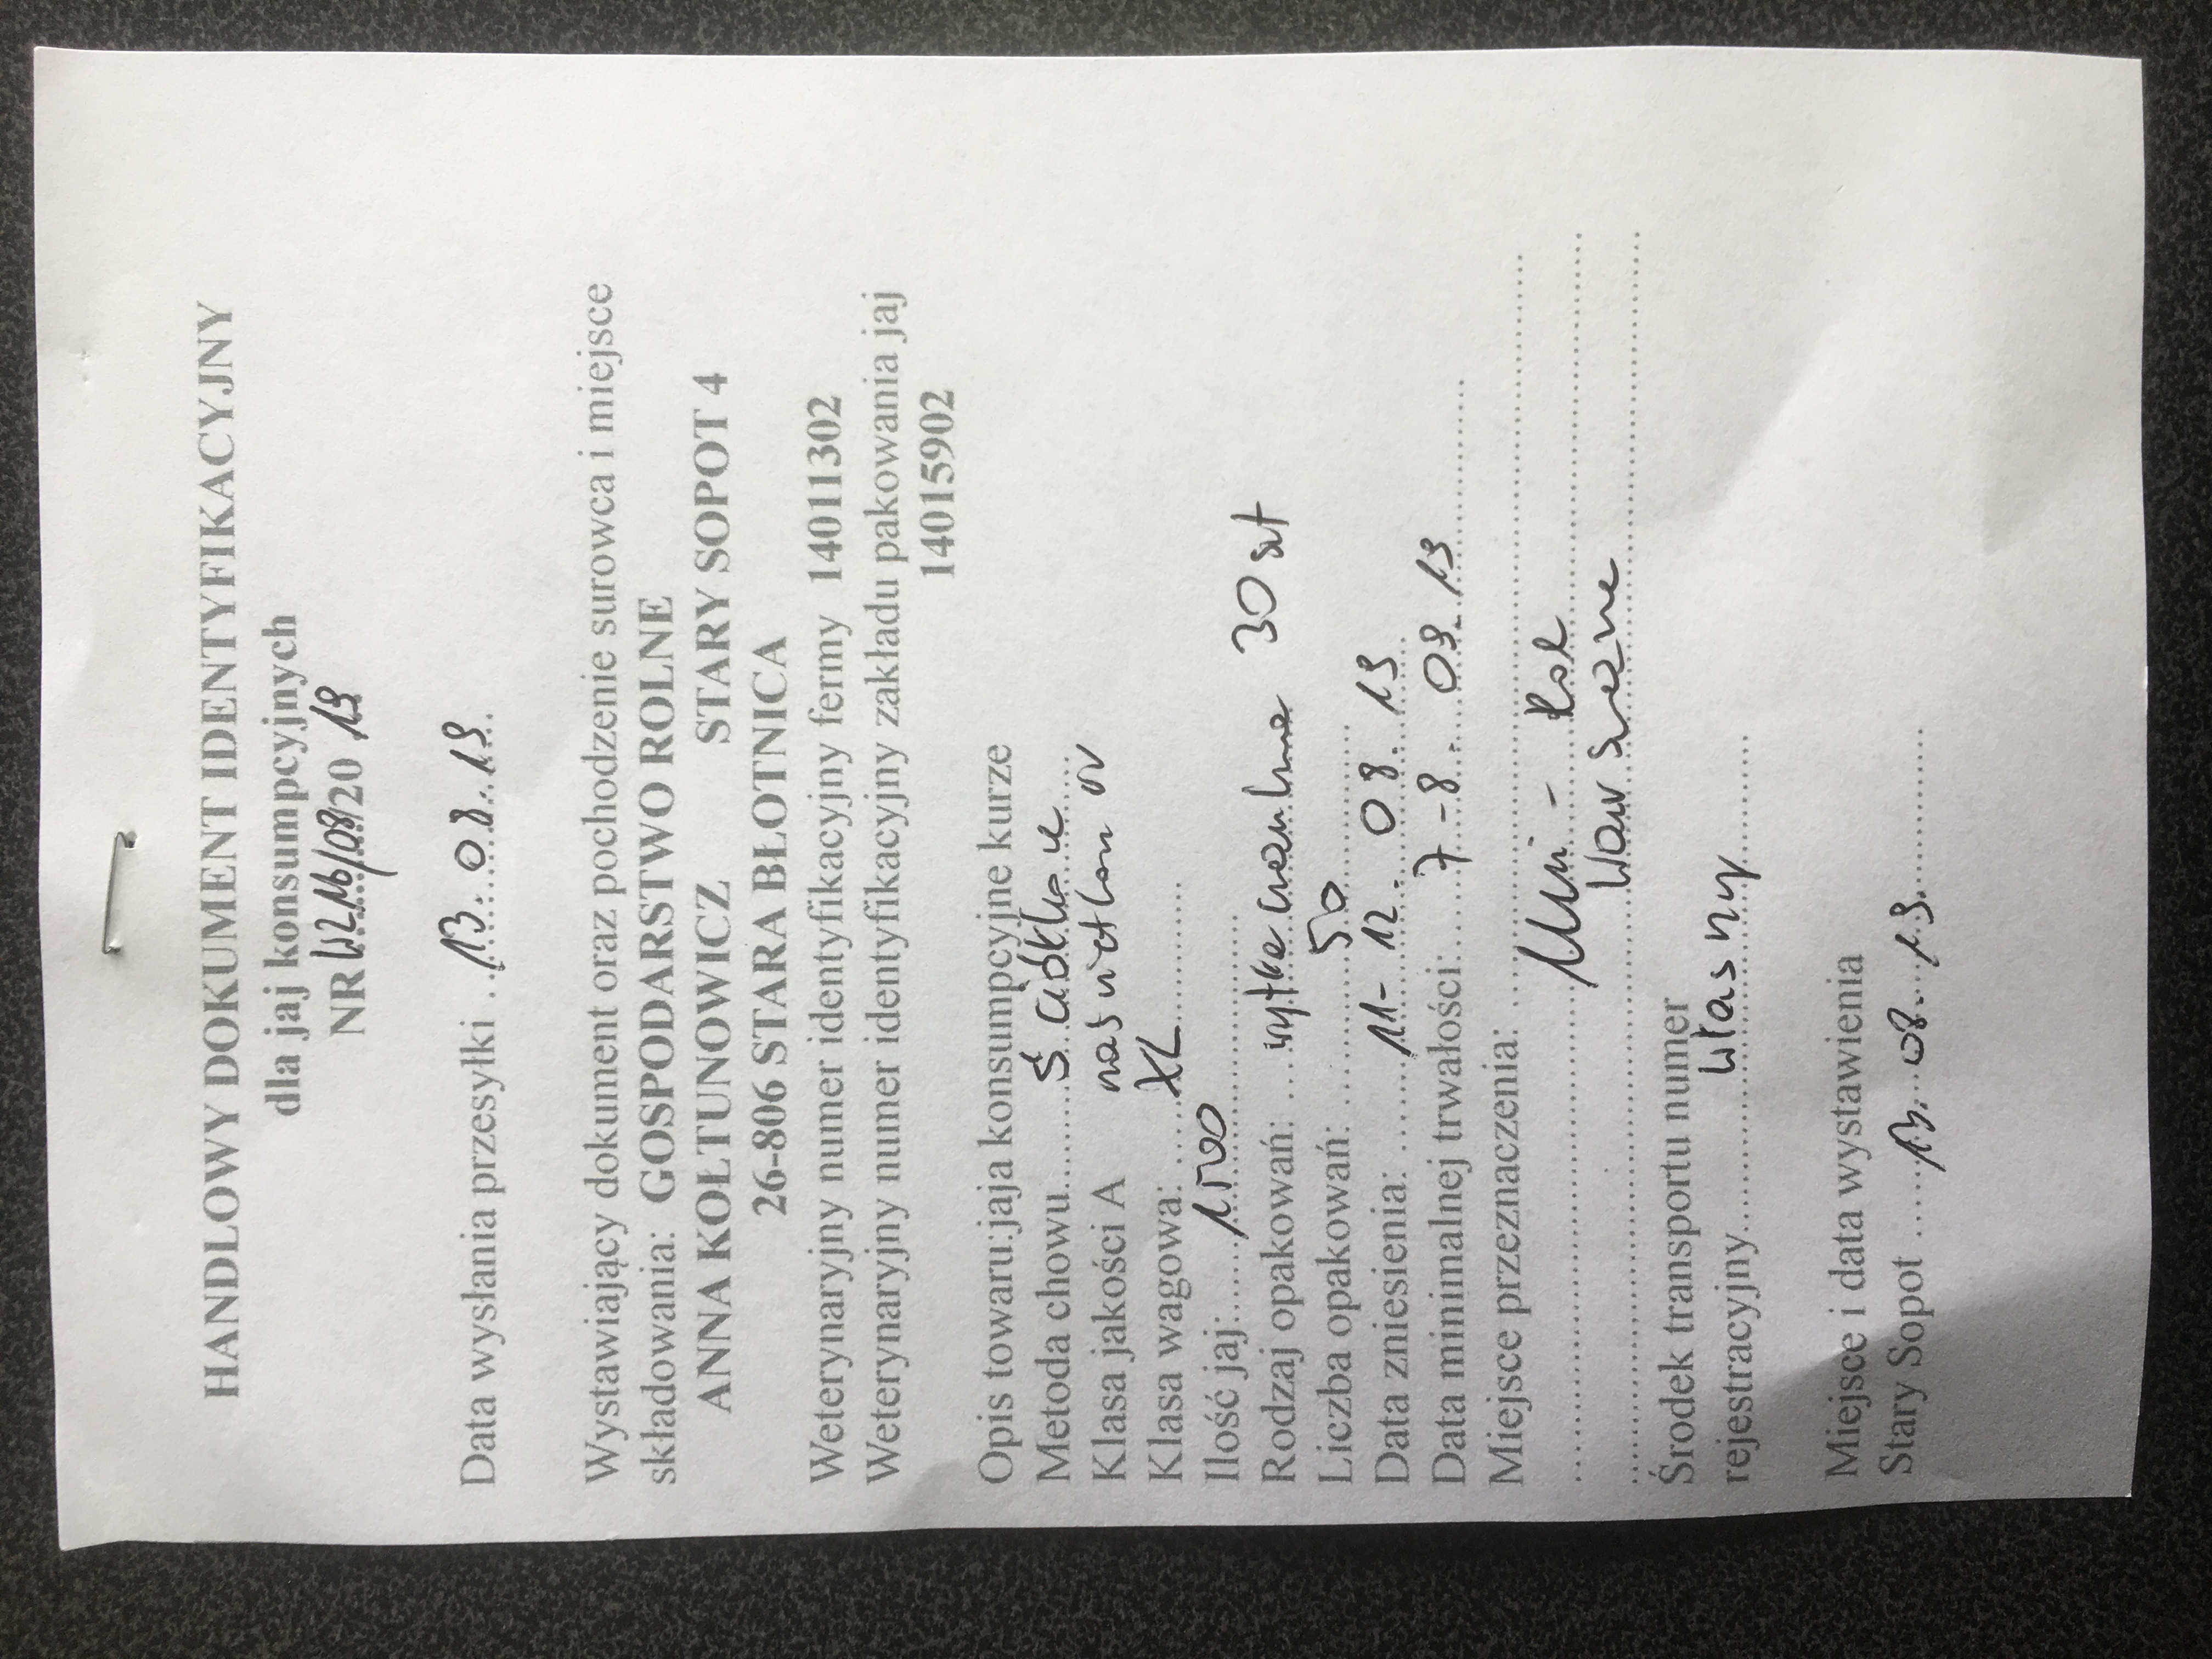 HANDLOWY DOKUMENT IDENTYFIKACYJNY
dla jaj konsumpcyjnych
NR WZ 116/08/20 19
Data wysłania przesyłki . 13. 08. 19.
Wystawiający dokument oraz pochodzenie surowca i miejsce
składowania: GOSPODARSTWO ROLNE
ANNA KOŁTUNOWICZ STARY SOPOT 4
26-806 STARA BŁOTNICA
Weterynaryjny numer identyfikacyjny fermy 14011302
Weterynaryjny numer identyfikacyjny zakładu pakowania jaj
14015902
Opis towaru:jaja konsumpcyjne kurze
Metoda chowu.......Ściółkowe
Klasa jakości A
Klasa wagowa: XL
Ilość jaj: 1500
Rodzaj opakowań: wytłaczanka 30 szt
Liczba opakowań: 50
Data zniesienia: 11-12. 08. 19
Data minimalnej trwałości: 7-8. 09. 19
Miejsce przeznaczenia:
Uni-
Warszawa
Środek transportu numer
rejestracyjny własny
Miejsce i data wystawienia
Stary Sopot 13. 08. 19.